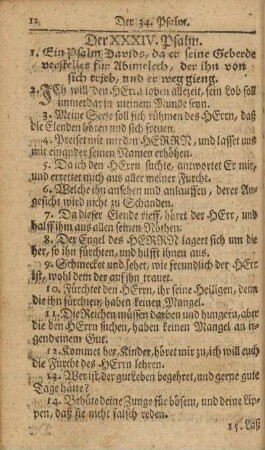 12 Der 34. Psalm.
Der XXXIV. Psalm.
1. Ein Psalm Davids, da er seine Geberde
verstellet für Abimelech, der ihn von
sich trieb, und er weg gieng.
2. JCh will den HErrn loben allezeit, sein Lob soll
immerdar in meinem Munde seyn.
3. Meine Seele soll sich rühmen des HErrn, daß
die Elenden hören und sich freuen.
4. Preiset mit mir den HERRN, und lasset uns
mit einander seinen Namen erhöhen.
5. Da ich den HErrn suchte, antwortet Er mir,
und errettet mich aus aller meiner Furcht.
6. Welche ihn ansehen und anlauffen, derer An-
gesicht wird nicht zu Schanden.
7. Da dieser Elende rieff, höret der HErr, und
halff ihm aus allen seinen Nöthen.
8. Der Engel des HERRN lagert sich um die
her, so ihn fürchten, und hilfft ihnen aus.
9. Schmecket und sehet, wie freundlich der HErr
ist, wohl dem der auf ihn trauet.
10. Fürchtet den HErrn, ihr seine Heiligen, denn
die ihn fürchten, haben keinen Mangel.
11. Die Reichen müssen darben und hungern, aber
die den HErrn suchen, haben keinen Mangel an ir-
gendeinem Gut.
12. Kommet her, Kinder, höret mir zu, ich will euch
die Furcht des HErrn lehren.
13. Wer ist, der gut Leben begehret, und gerne gute
Tage hätte?
14. Behüte deine Zunge für bösem, und deine Lip-
pen, daß sie nicht falsch reden.
15. Laß